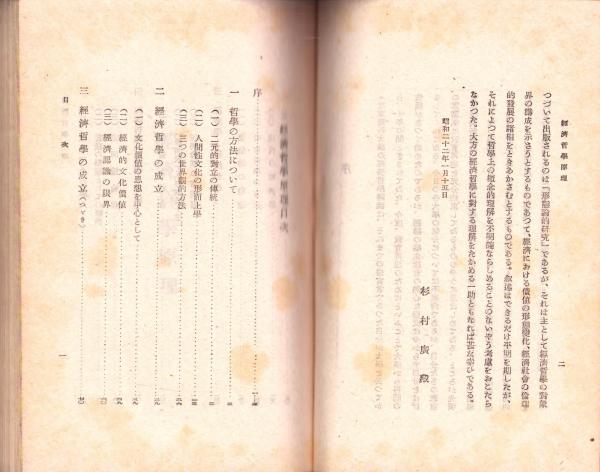 經濟哲學原理
二
つづいて出版されるのは『形態論的研究』であるが、それは主として經濟哲學の對象
界の構成を示さうとするものであつて、經濟における價値の形態變化、經濟社會の倫理
的發展の諸相をときあかさむとするものである。敍述はできるだけ平明を期したが、
それによつて哲學上の概念的理解を不明能ならしめることのないやう考慮をおこたら
なかつた。大方の經濟哲學に對する理解をたかめる一助ともなれば甚だ幸ひである。
昭和二十二年一月十五日
杉村廣藏
經濟哲學原理目次
序
一 哲學の方法について
(一) 二元的對立の傳統
(二) 人間性文化の形而上學
(三) 三つの世界觀的方法
二 經濟哲學の成立
(一) 文化價値の思想を中心として
(二) 經濟的文化價値
(三) 經濟認識の限界
三 經濟哲學の成立(つづき)
目次
一